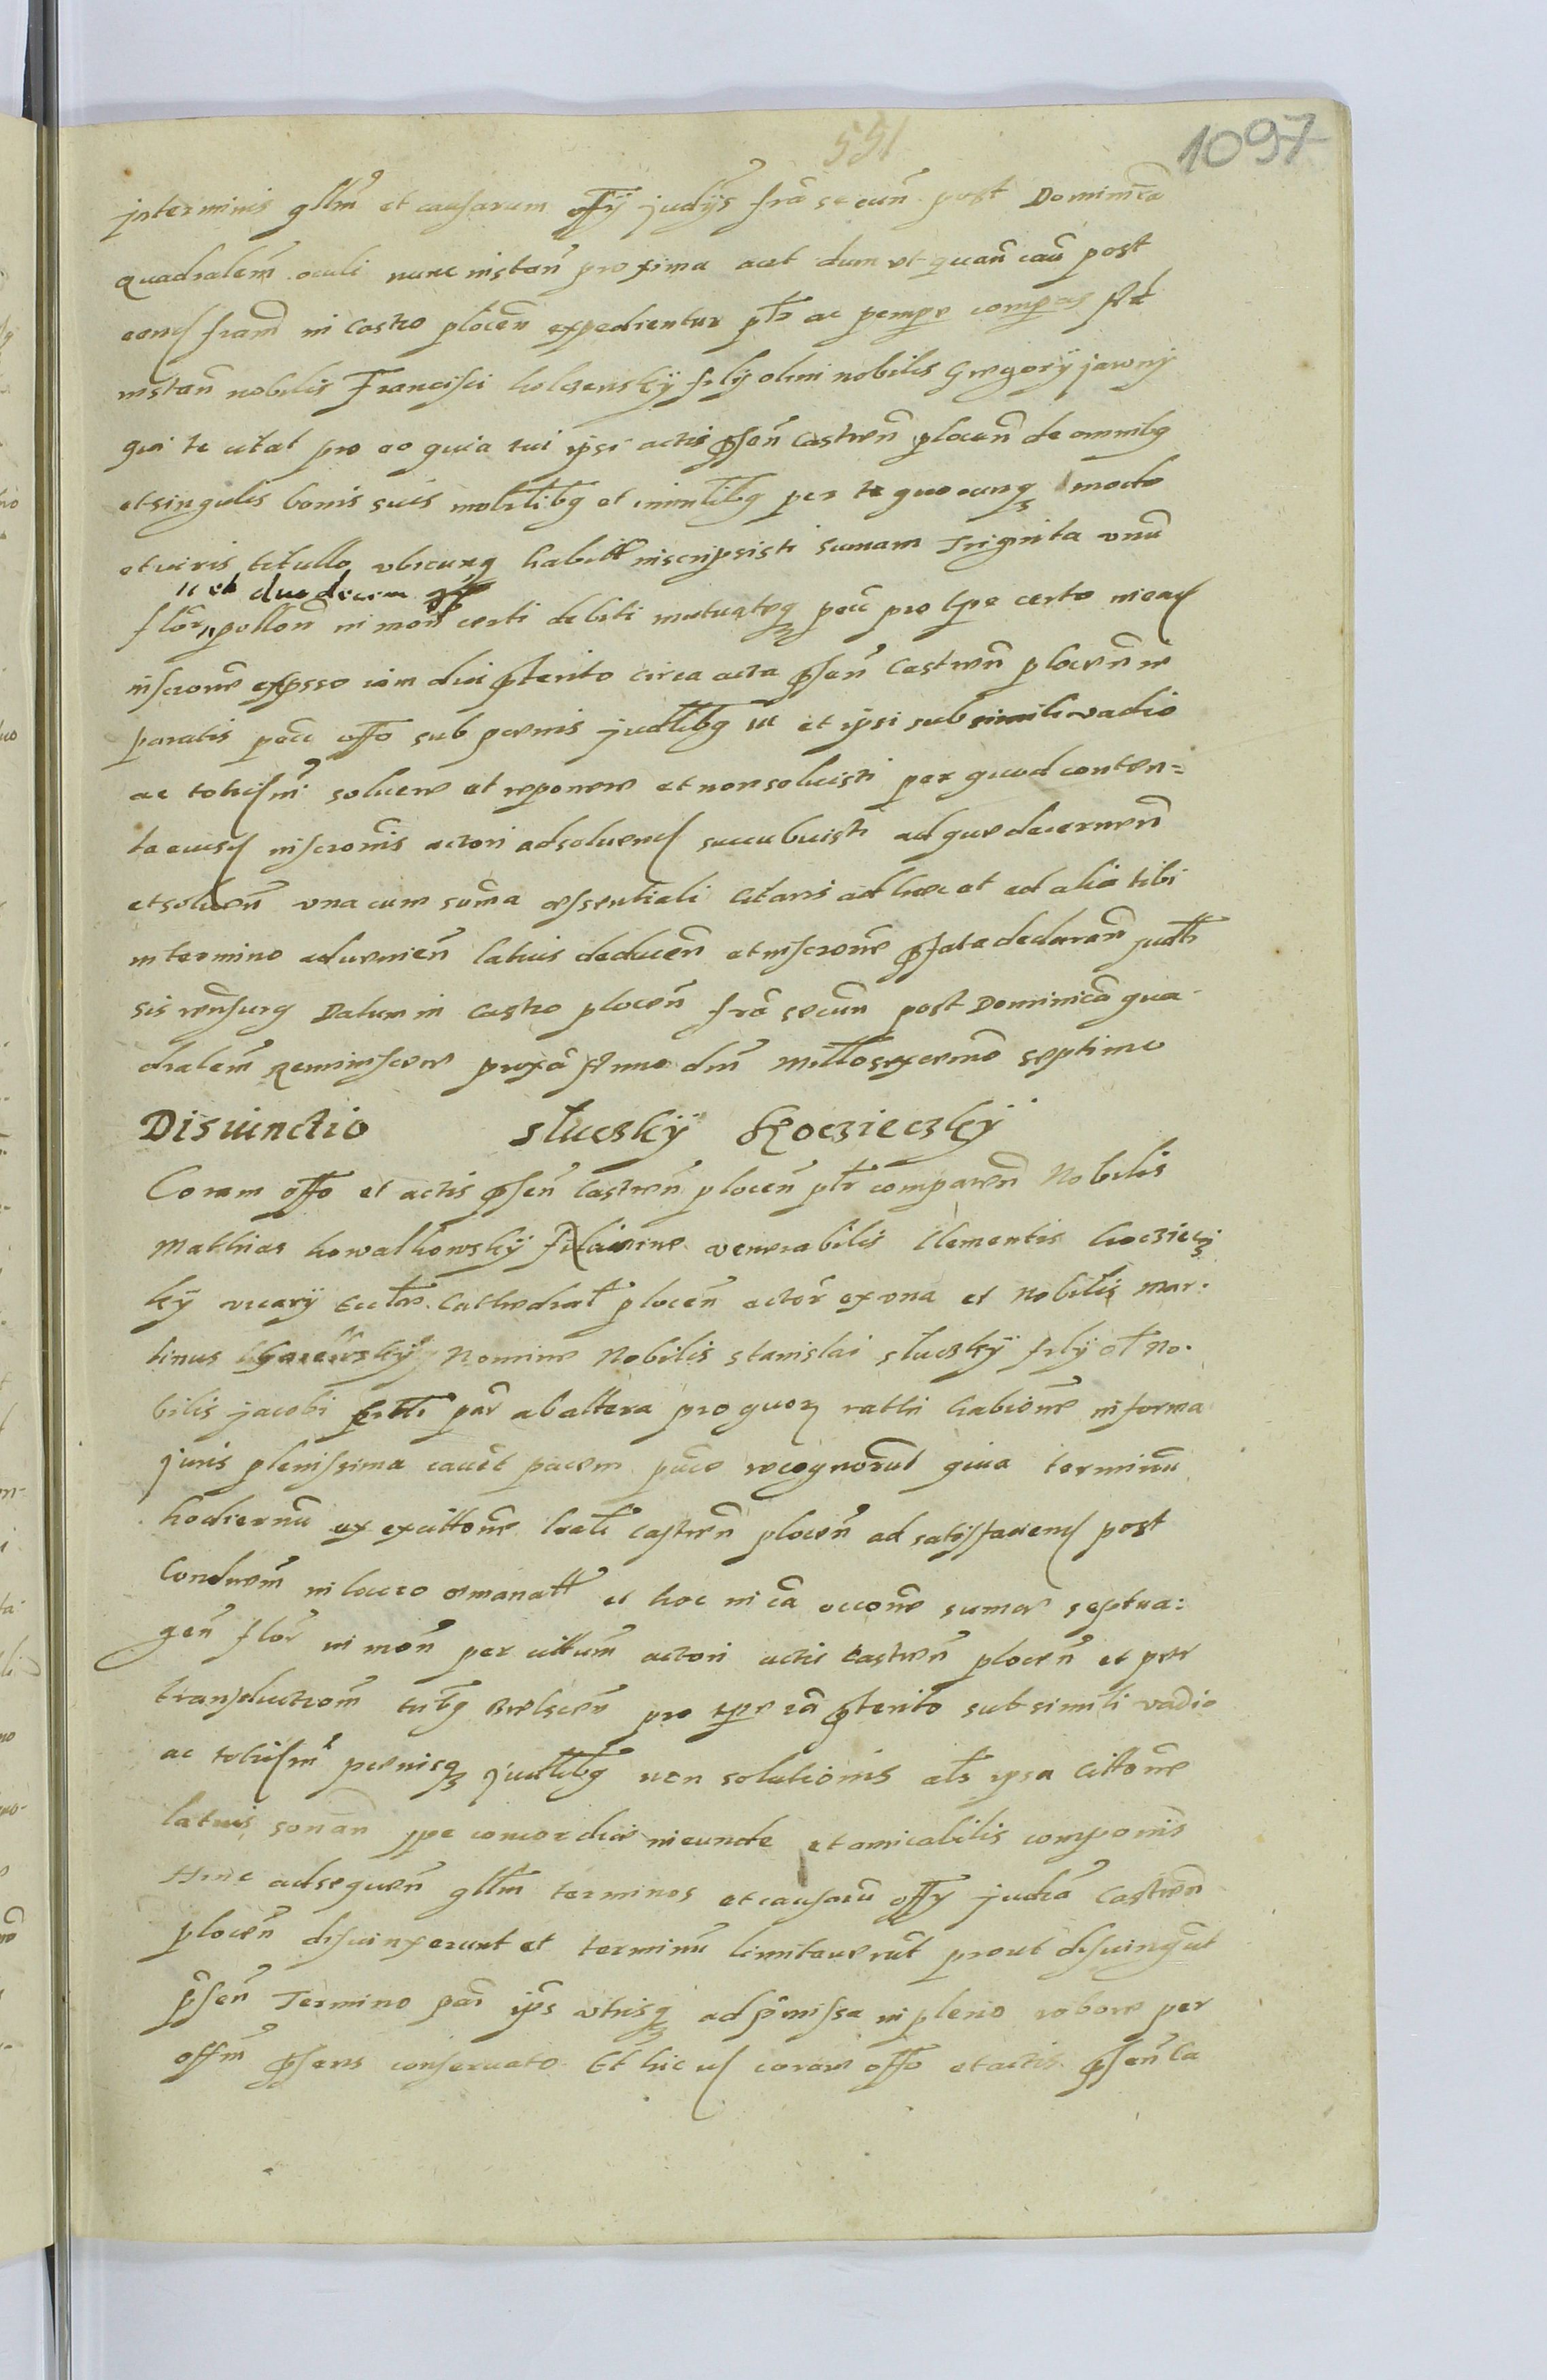 551
1097
in terminis gllm et causarum offy judys fra secun post Dominica
quadralem oculi nunc instan proxima aut dum et quan cau post
eand fram in Castro plocen expedientur ptr ac pempe compas Ad
instan nobilis Francisci kolczensky fily olim nobilis Gregory jawny
qui te citat pro eo quia tui ipsi actis psen Castren plocen de omnibg
et singulis bonis suis mobilibg et immlibg per te quocunq modo
et iuris titullo ubicunq habitt inscripsisti sumam Triginta unu
et duodecim gr
flor pollon in mon certi debiti mutuateq pecu pro tpe certo in ead
inscrone expsso iam diu pterito circa acta psen Castren plocen re
paratis pecu offo sub penis judlibg et ipsi sub simili vadio
ac tohism soluere et reponere et non soluisti per quod conten=
ta eiusd inscronis actori ad soluend succubuisti ad que decernen
et soluen una cum suma essentiali Citaris ad hec et ad alia tibi
in termino adueniem latius deducen et inscrone psata declaran judtr
sis rensurg Datum in Castro plocen fra secun post Dominica qua
dralem Reminiscere proxa Anno dni Millosexcenmo septimo
Disiunctio Slucsky Koczieczky
Coram offo et actis psen Castren plocen ptr comparen Nobilis
Mathias kowalkowsky nomine venerabilis Clementis kocziecz
ky vicary Eccltae Cathedral plocen actor ex una et Nobilis Mar.
tinus Nomine Nobilis Stanislai Slucsky fily ol No.
bilis jacobi citti par ab altera pro quor rathi habione in forma
juris plenissima cauet pacem puce recognorunt quia terminu
hodiernu ex cittone Castren plocen ad satisfaciend post
Condnem in loco emanatt et hoc in ca occone sumae septua:
gen flor in mon per cittum actori actis Castren plocen et per
transductiom tribg Bielscen pro tpe ia pterito sub simili vadio
ac tohism penisq judlibg non solutionis als ipsa Cittone
latius sonan spe concordiae ineunde et amicabilis componis
Hinc ad sequen gllm terminos et causaru offy judia Castren
plocen disiunxerunt et terminu limitauerunt prout disiungut
psen Termino par ips utrisq ad pmissa in pleno robore per
offm psens conseruato Et hic id coram offo et actis psen Ca